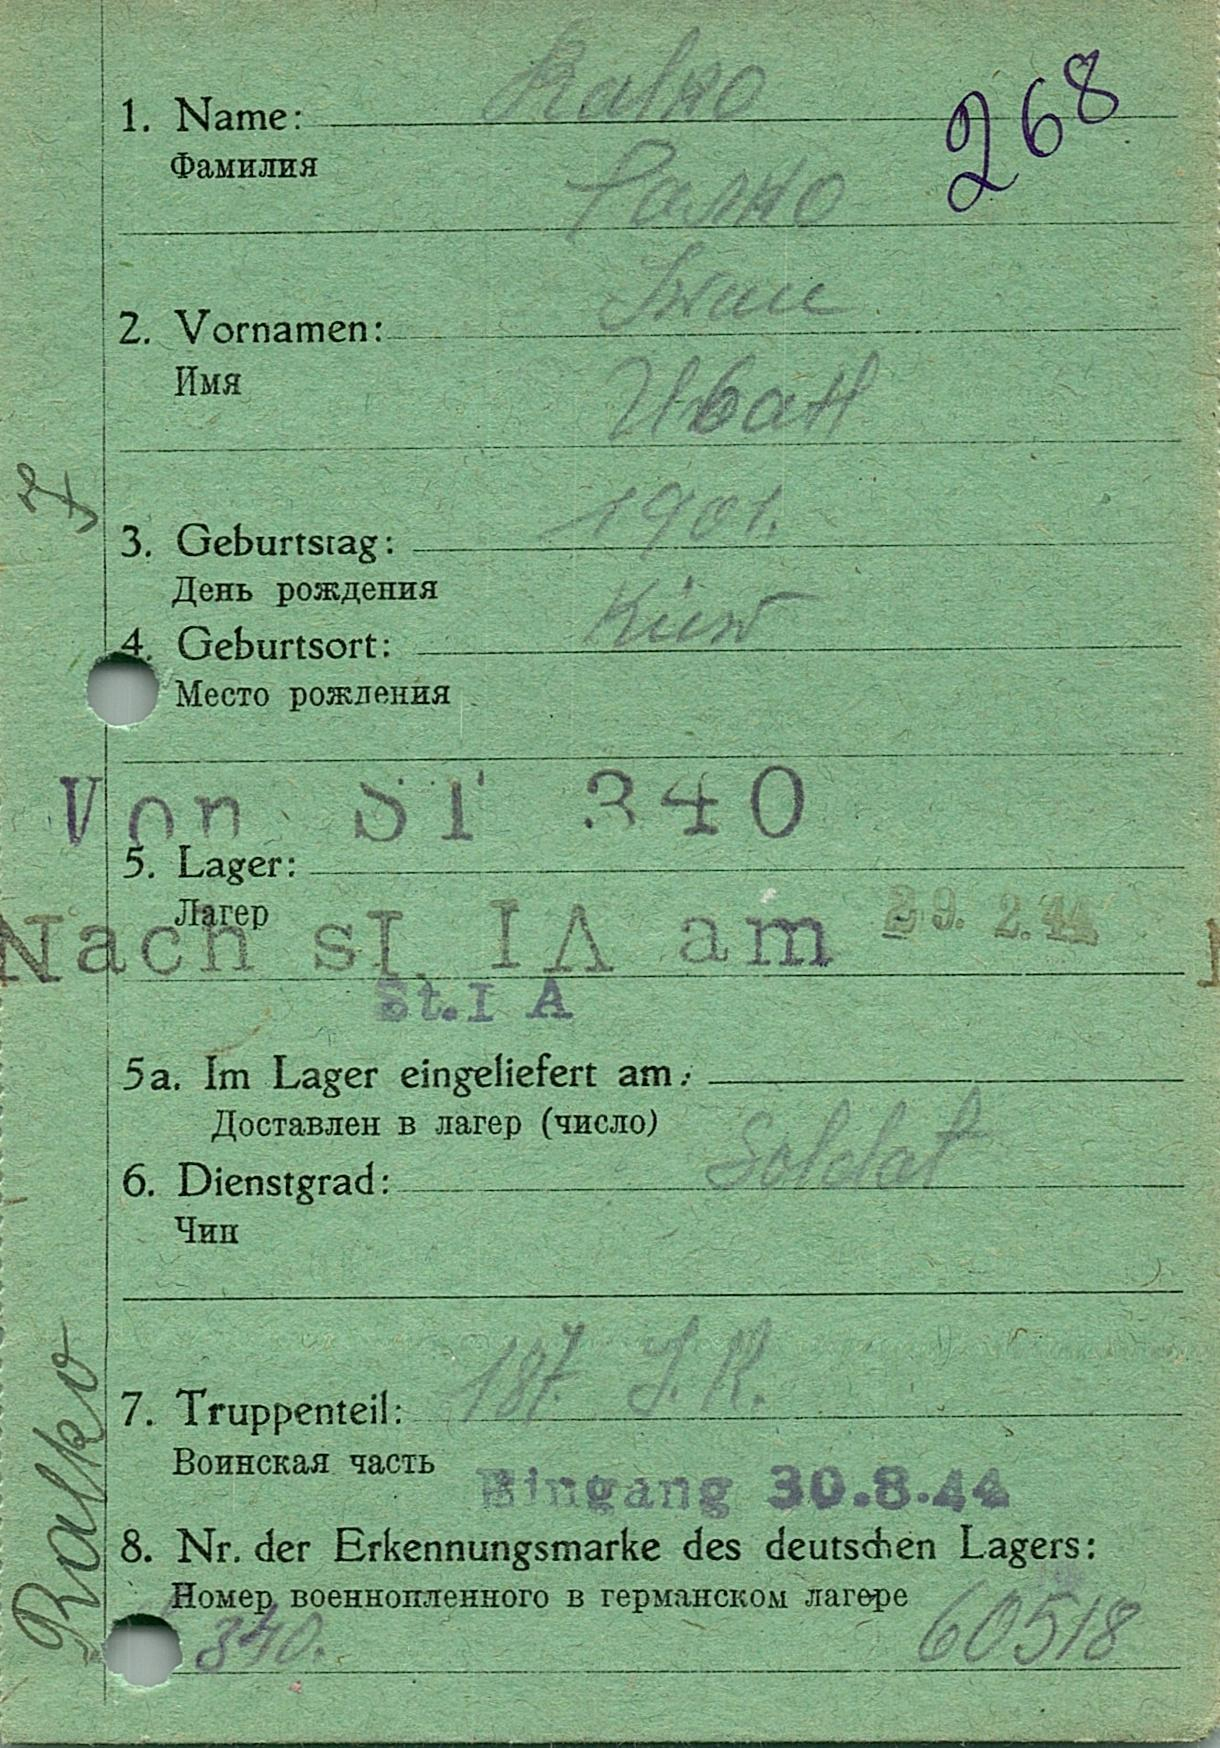 268
1. Name: Ralko
Фамилия
Ралко
Iwan
2. Vornamen:
Имя
Иван
3. Geburtstag: 1901.
День рождения
4. Geburtsort: Kiew
Место рождения
Von ST 340
5. Lager:
Лагер
Nach sI. IA am 29. 2. 44
St. I A
5a. Im Lager eingeliefert am:
Доставлен в лагер (число)
6. Dienstgrad: Soldat
Чин
7. Truppenteil: 187. I. R.
Воинская часть
Eingang 30.8.44
8. Nr. der Erkennungsmarke des deutschen Lagers:
Номер военнопленного в германском лагере
340. 60518
Ralko